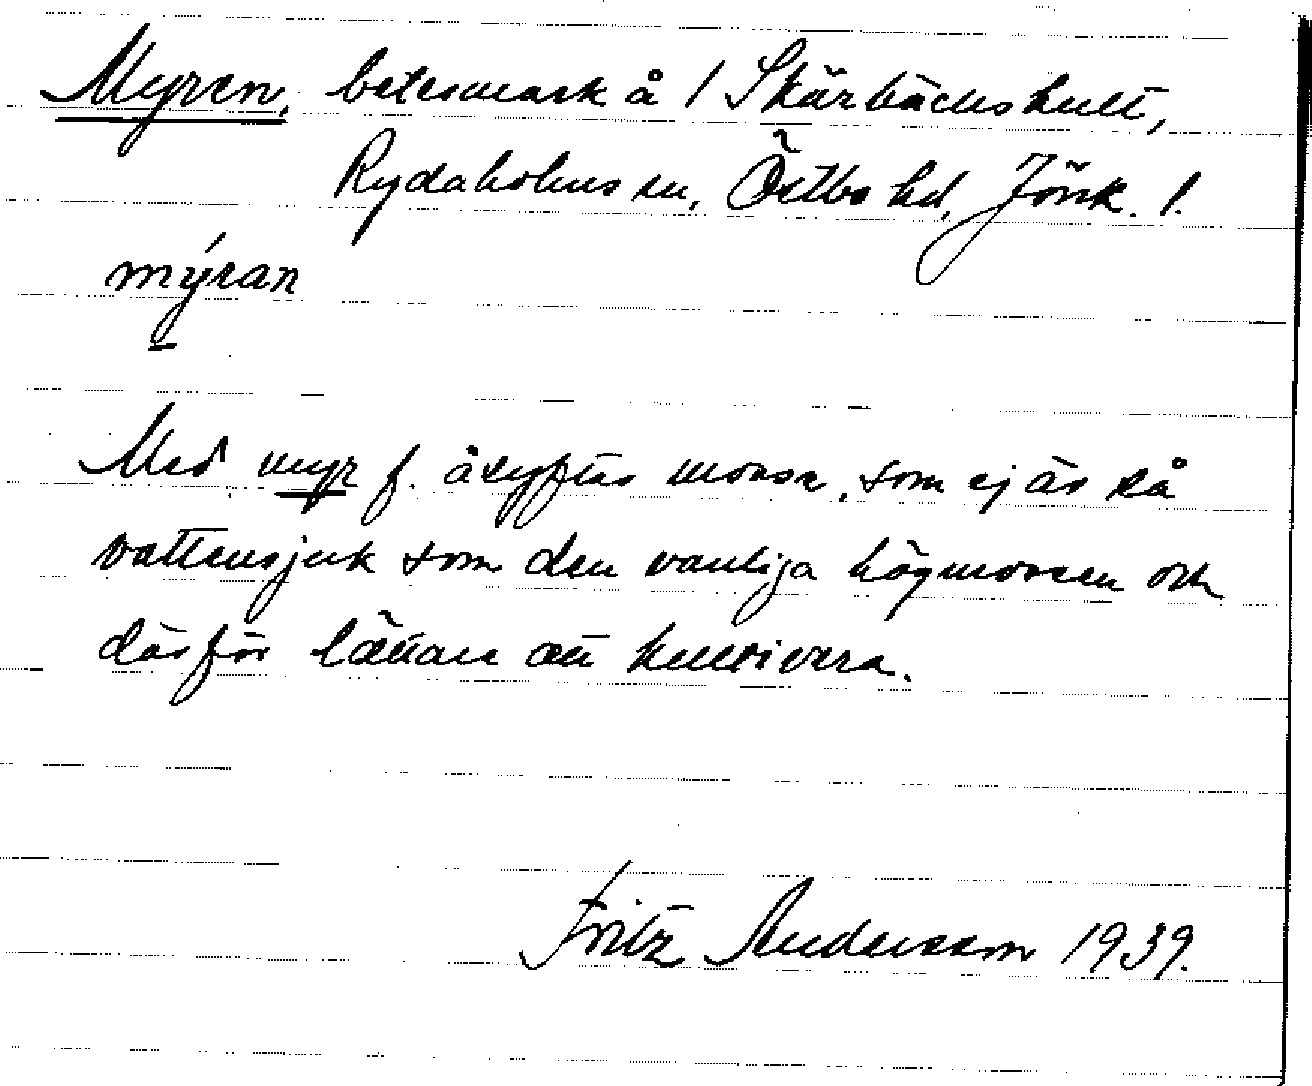 Myren, betesmark å / Skärbäckshult,
Rydaholms sn, Östbo hd, Jönk. l.
mýran
Med myr f. åsyftas mosse, som ej är så
vattensjuk som den vanliga högmossen och
därför lättare att kultivera.
Fritz Andersson 1939.